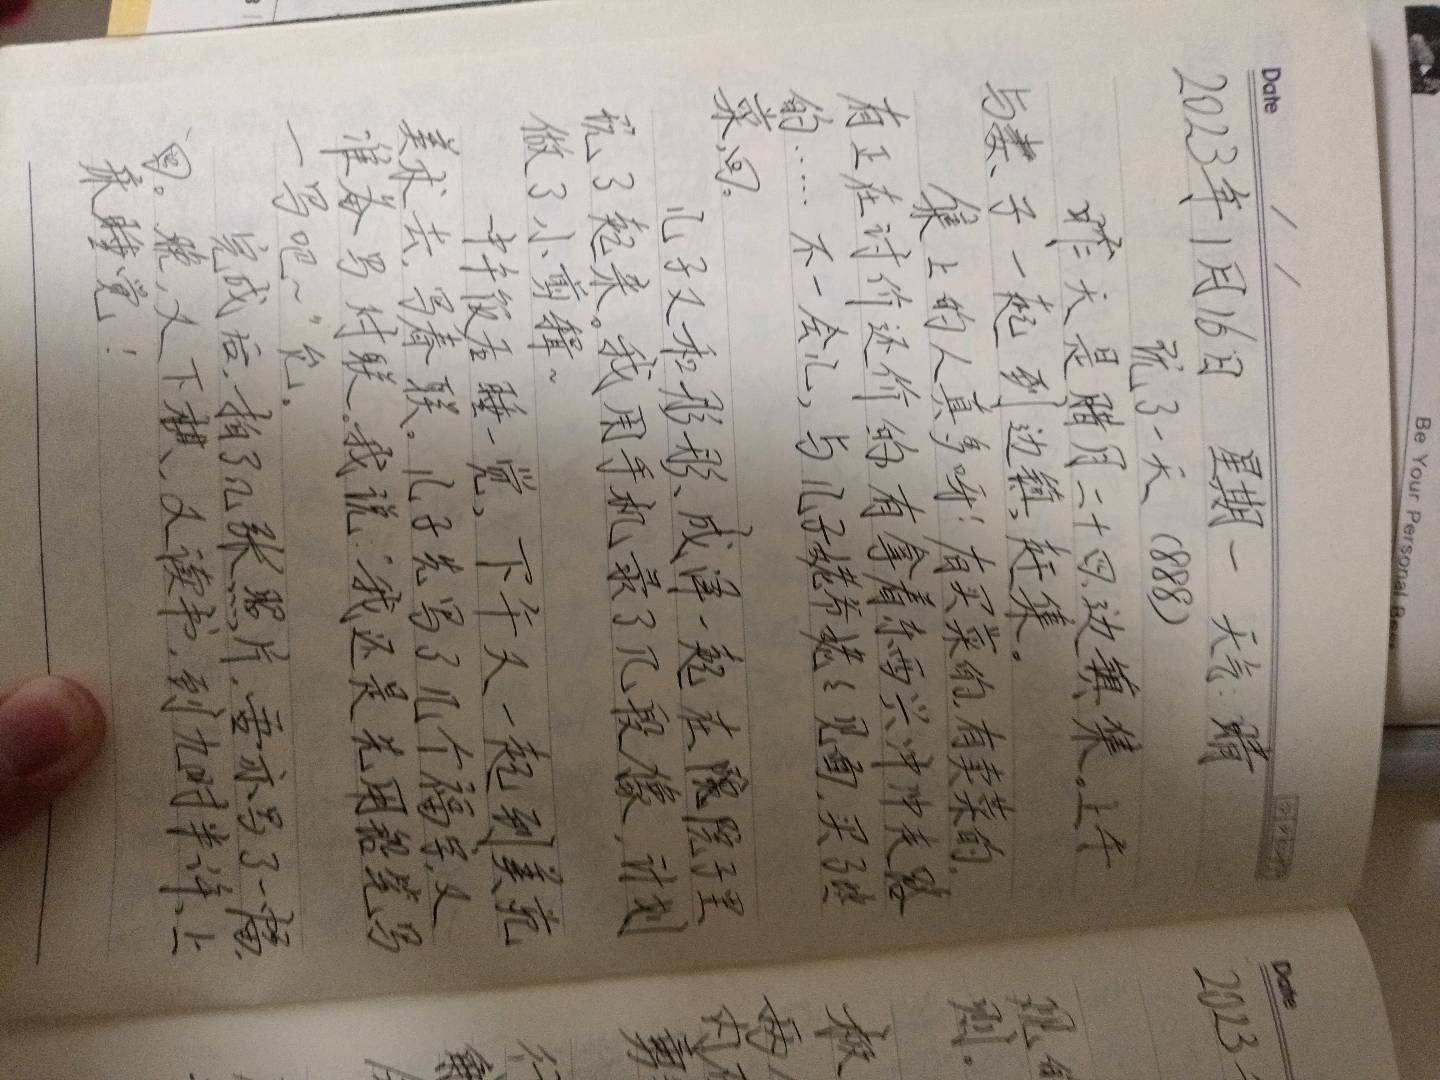 Date
2023年1月16日 星期一 天气:晴
玩了一天 (888)
昨天是腊月二十四,边镇集。上午
与妻、子一起到边镇,赶集。
集上的人真多呀!有买菜的,有卖菜的,
有正在讨价还价的,有拿着东西兴冲冲走路
的……不一会儿,与儿子姥爷姥姥见面,买了些
菜,回。
儿子又和彤彤、成泽一起在院子里
玩了起来。我用手机录了几段像,计划
做了小剪辑~
中午饭后睡一觉,下午又一起到
美术去,写春联。儿子先写了几个福字,又
准备写对联。我说:“我还是先用铅笔写
一写吧~”
完成后,拍了几张照片,妻亦写了一幅,
回。晚,又下棋,又读书,到九时半许,上
来睡觉!
Date
2023
Be Your Personal